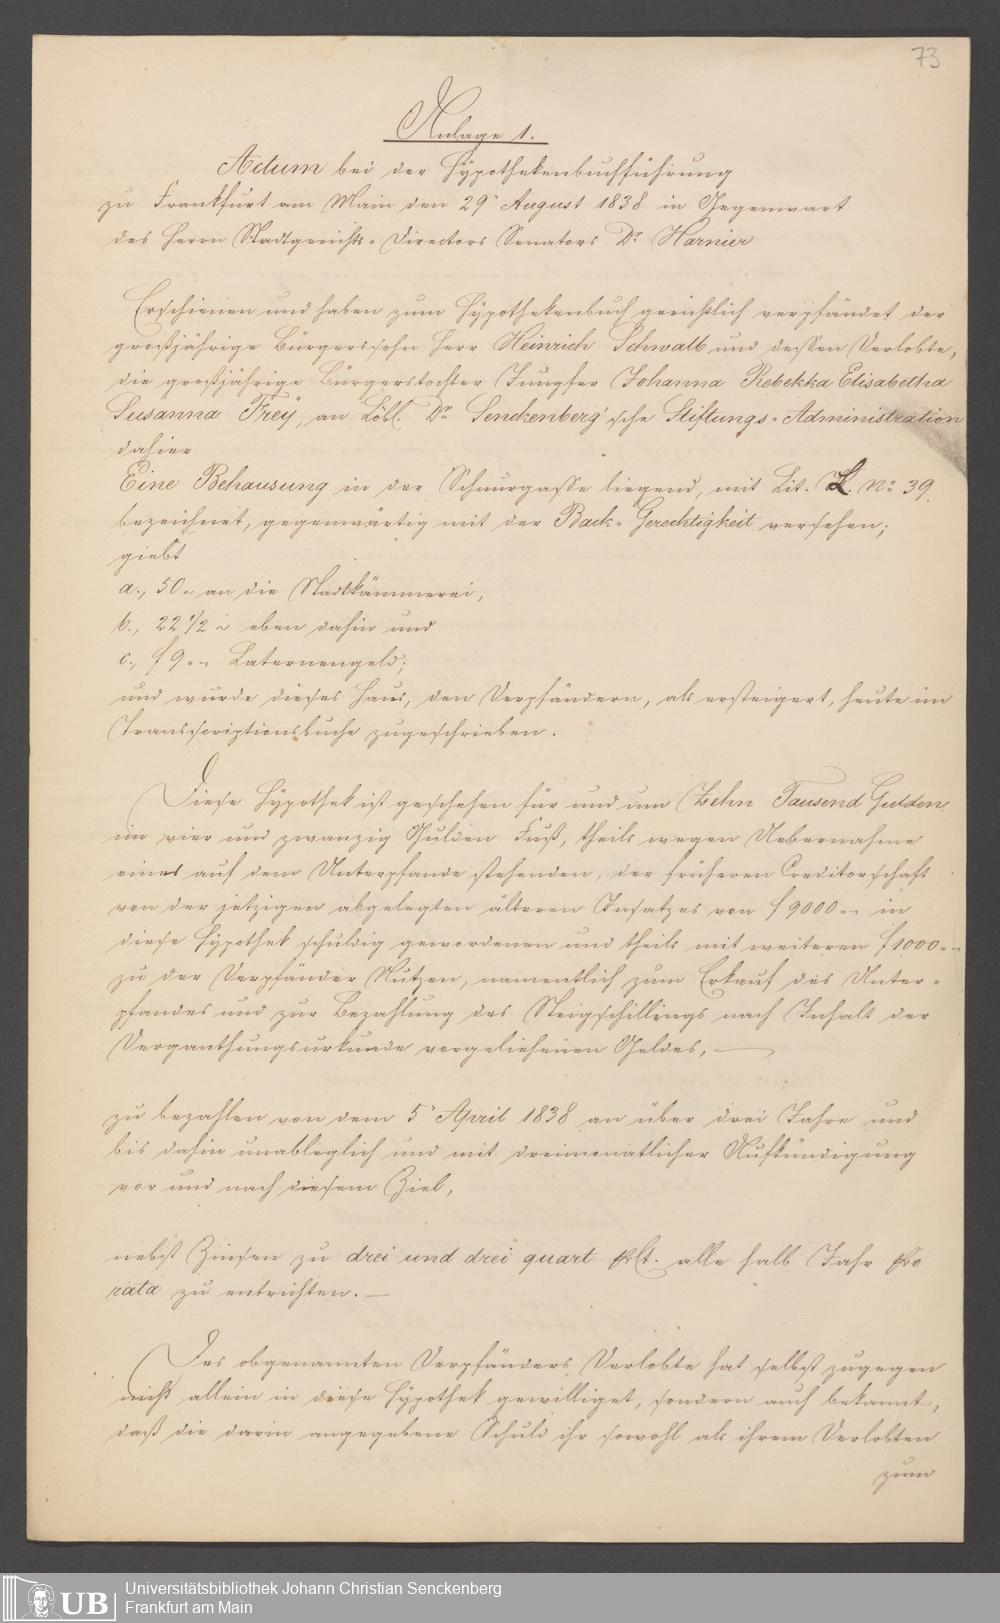 73
Anlage 1.
Actum bei der Hypothekenbuchführung
zu Frankfurt am Main den 29r August 1838 in Gegenwart
des Herrn Stadtgerichts-Directors Senators Dr. Harnier
Erschienen und haben zum Hypothekenbuch gerichtlich verpfändet der
großjährige Bürgerssohn Herr Heinrich Schwalb und dessen Verlobte,
die großjährige Bürgerstochter Jungfer Johanna Rebekka Elisabetha
Susanna Freÿ, an Löbl. Dr. Senckenberg'sche Stiftungs-Administration
dahier
Eine Behausung in der Schnurgasse liegend, mit Lit. K. No 39.
bezeichnet, gegenwärtig mit der Back-Gerechtigkeit versehen;
giebt
a., 50 an die Stadtkämmerei,
b., 22 1/2 eben dahin und
c., f 9 Laternengeld;
und wurde dieses Haus, den Verpfändern, als ersteigert, heute im
Transscriptionsbuche zugeschrieben.
Diese Hypothek ist geschehen für und um Zehn Tausend Gulden
im vier und zwanzig Gulden Fuß, theils wegen Uebernahme
eines auf dem Unterpfande stehenden, der früheren Creditorschaft
von der jetzigen abgelegten älteren Insatzes von f 9000 in
diese Hypothek schuldig gewordenen und theils mit weiteren f 1000
zu der Verpfänder Nutzen, namentlich zum Erkauf des Unter-
pfandes und zur Bezahlung des Steigschillings nach Inhalt der
Verganthungsurkunde vorgeliehenen Geldes, —
zu bezahlen von dem 5r April 1838 an über drei Jahre und
bis dahin unableglich und mit dreimonatlicher Aufkündigung
vor und nach diesem Ziel,
nebst Zinsen zu drei und drei quart prCt. alle halb Jahr pro
rata zu entrichten. —
Des obgenannten Verpfänders Verlobte hat selbst zugegen
nicht allein in diese Hypothek gewilliget, sondern auch bekannt,
daß die darin angegebene Schuld ihr sowohl als ihrem Verlobten
zum
UB
Universitätsbibliothek Johann Christian Senckenberg
Frankfurt am Main